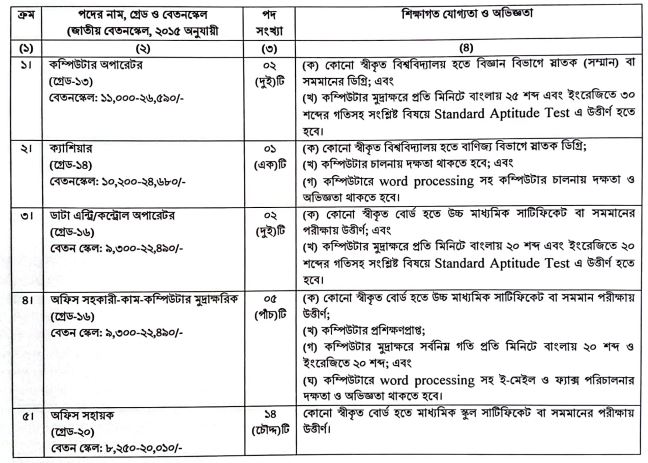 ক্রম
পদের নাম, গ্রেড ও বেতনস্কেল
(জাতীয় বেতনস্কেল, ২০১৫ অনুযায়ী
পদ
সংখ্যা
শিক্ষাগত যোগ্যতা ও অভিজ্ঞতা
(১)
(২)
(৩)
(৪)
১।
কম্পিউটার অপারেটর
(গ্রেড-১৩)
বেতনস্কেল: ১১,০০০-২৬,৫৯০/-
০২
(দুই)টি
(ক) কোনো স্বীকৃত বিশ্ববিদ্যালয় হতে বিজ্ঞান বিভাগে স্নাতক (সম্মান) বা
সমমানের ডিগ্রি; এবং
(খ) কম্পিউটার মুদ্রাক্ষরে প্রতি মিনিটে বাংলায় ২৫ শব্দ এবং ইংরেজিতে ৩০
শব্দের গতিসহ সংশ্লিষ্ট বিষয়ে Standard Aptitude Test এ উত্তীর্ণ হতে
হবে।
২।
ক্যাশিয়ার
(গ্রেড-১৪)
বেতনস্কেল: ১০,২০০-২৪,৬৮০/-
০১
(এক)টি
(ক) কোনো স্বীকৃত বিশ্ববিদ্যালয় হতে বাণিজ্য বিভাগে স্নাতক ডিগ্রি;
(খ) কম্পিউটার চালনায় দক্ষতা থাকতে হবে; এবং
(গ) কম্পিউটারে word processing সহ কম্পিউটার চালনায় দক্ষতা ও
অভিজ্ঞতা থাকতে হবে।
৩।
ডাটা এন্ট্রি/কন্ট্রোল অপারেটর
(গ্রেড-১৬)
বেতন স্কেল: ৯,৩০০-২২,৪৯০/-
০২
(দুই)টি
(ক) কোনো স্বীকৃত বোর্ড হতে উচ্চ মাধ্যমিক সার্টিফিকেট বা সমমানের
পরীক্ষায় উত্তীর্ণ; এবং
(খ) কম্পিউটার মুদ্রাক্ষরে প্রতি মিনিটে বাংলায় ২০ শব্দ এবং ইংরেজিতে ২০
শব্দের গতিসহ সংশ্লিষ্ট বিষয়ে Standard Aptitude Test এ উত্তীর্ণ হতে
হবে।
৪।
অফিস সহকারী-কাম-কম্পিউটার মুদ্রাক্ষরিক
(গ্রেড-১৬)
বেতন স্কেল: ৯,৩০০-২২,৪৯০/-
০৫
(পাঁচ)টি
(ক) কোনো স্বীকৃত বোর্ড হতে উচ্চ মাধ্যমিক সার্টিফিকেট বা সমমান পরীক্ষায়
উত্তীর্ণ;
(খ) কম্পিউটার প্রশিক্ষণপ্রাপ্ত;
(গ) কম্পিউটার মুদ্রাক্ষরে সর্বনিম্ন গতি প্রতি মিনিটে বাংলায় ২০ শব্দ ও
ইংরেজিতে ২০ শব্দ; এবং
(ঘ) কম্পিউটারে word processing সহ ই-মেইল ও ফ্যাক্স পরিচালনার
দক্ষতা ও অভিজ্ঞতা থাকতে হবে।
৫।
অফিস সহায়ক
(গ্রেড-২০)
বেতন স্কেল: ৮,২৫০-২০,০১০/-
১৪
(চৌদ্দ)টি
কোনো স্বীকৃত বোর্ড হতে মাধ্যমিক স্কুল সার্টিফিকেট বা সমমানের পরীক্ষায়
উত্তীর্ণ।